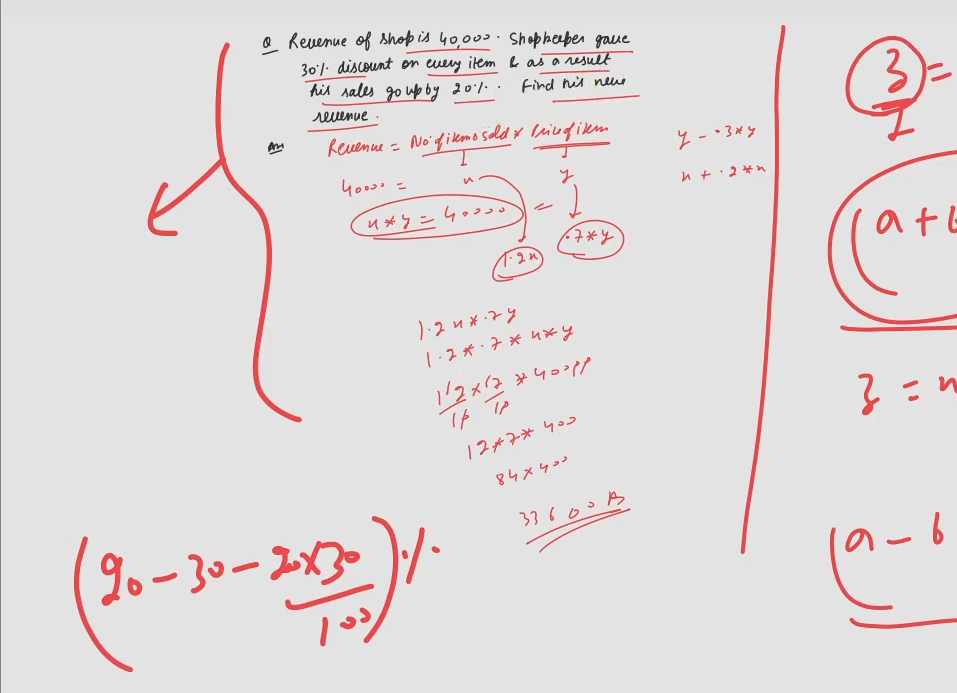 Q Revenue of shop is 40,000. Shopkeeper gave
30% discount on every item & as a result
his sales go up by 20%. Find his new
revenue.
Ans Revenue = No. of items sold * Price of item
40000 = x y
x * y = 40000 =
1.2x .7*y
y - .3*y
x + .2*x
1.2x * .7y
1.2 * .7 * x * y
12/10 x 7/10 * 40000
12 * 7 * 400
84 x 400
33600 A
(20 - 30 - 20x30/100)%
3/1 =
(a + b
z = x
(a - b